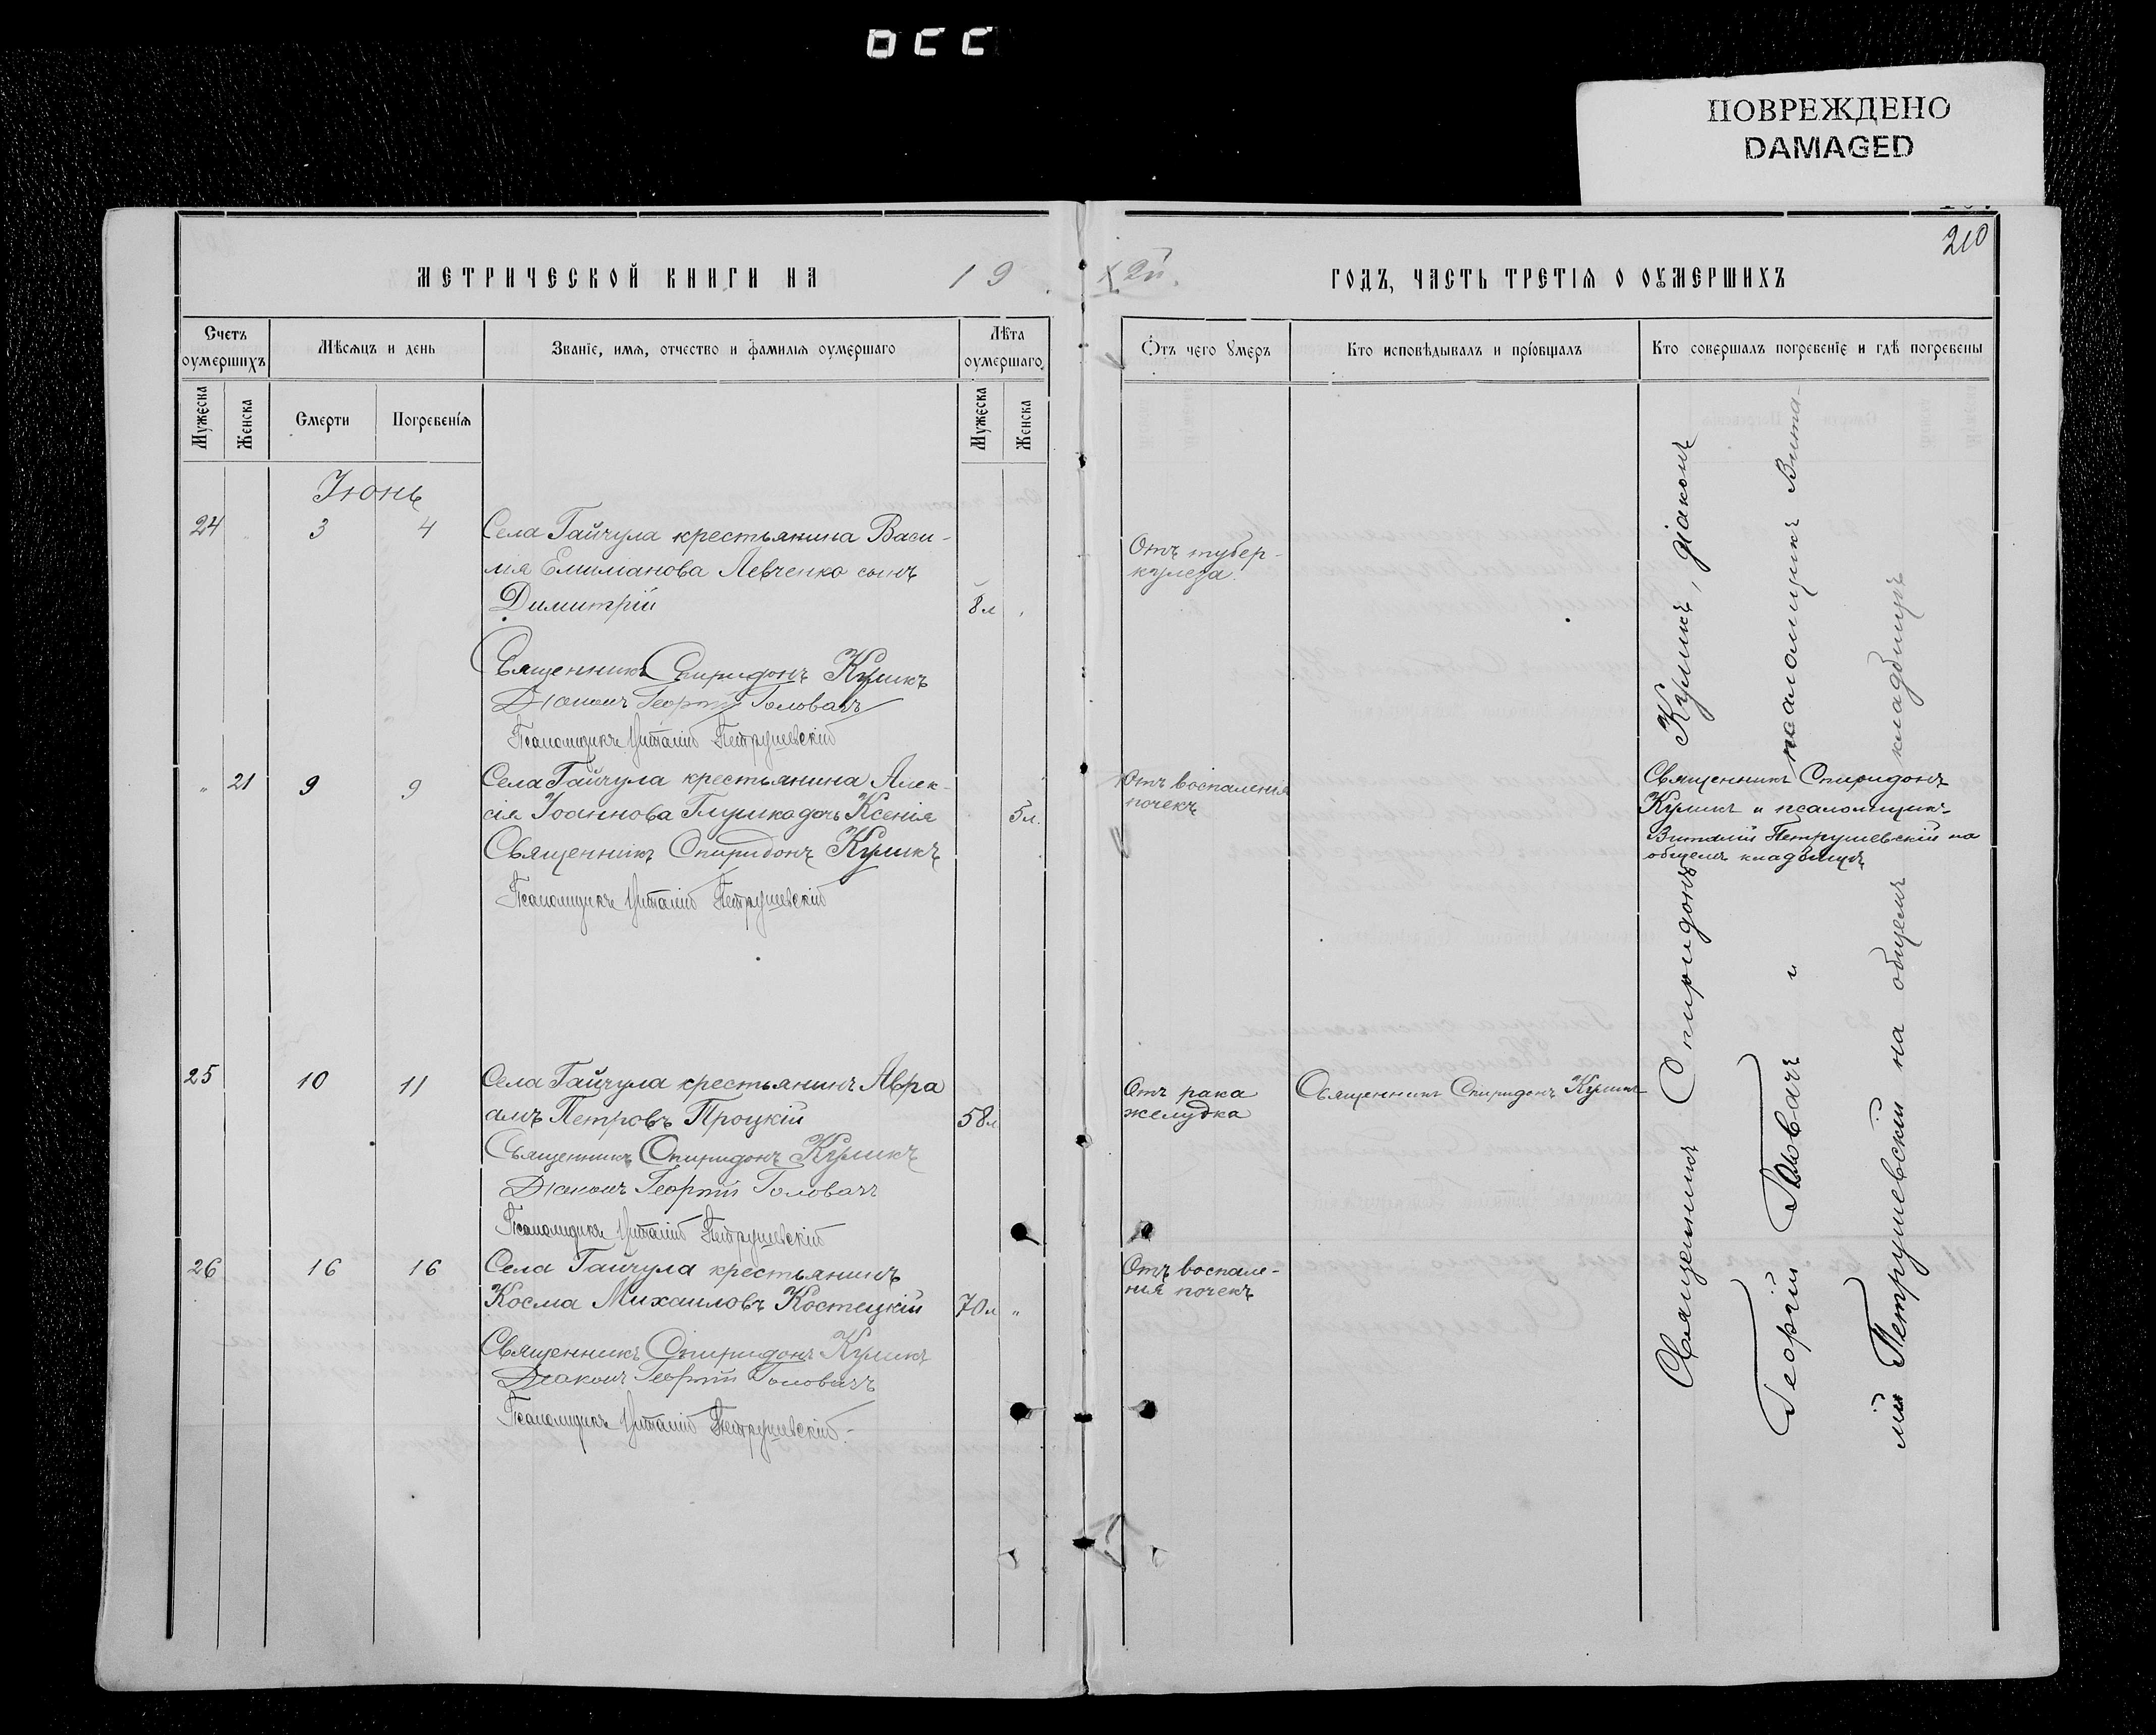 ПОВРЕЖДЕНО
DAMAGED
210
МЕТРИЧЕСКОЙ КНИГИ НА 19
ГОДЪ, ЧАСТЬ ТРЕТІЯ О ОУМЕРШИХЪ
Счетъ оумершихъ
Мѣсяцъ и день
Званіе, имя, отчество и фамилія оумершаго
Лѣта оумершаго
Отъ чего умеръ
Кто исповѣдывалъ и пріобщалъ
Кто совершалъ погребеніе и гдѣ погребены
Мужеска
Женска
Смерти
Погребенія
Мужеска
Женска
Іюнь
24 3 4 Села Гайчула крестьянина Васи-
лія Емиліанова Левченко сынъ
Димитрій 8 л
Отъ тубер-
кулеза.
Священникъ Спиридонъ Куликъ
Діаконъ Георгій Головачъ
Псаломщикъ Виталій Петрушевскій
" 21 9 9 Села Гайчула крестьянина Алек-
сія Іоаннова Глушка дочь Ксенія 5 л.
Отъ воспаленія
почекъ
Священникъ Спиридонъ
Куликъ и псаломщикъ
Виталій Петрушевскій на
общемъ кладбищѣ
Священникъ Спиридонъ Куликъ
Псаломщикъ Виталій Петрушевскій
25 10 11 Села Гайчула крестьянинъ Авра
амъ Петровъ Процкій 58 л
Отъ рака
желудка
Священникъ Спиридонъ Куликъ
Священникъ Спиридонъ Куликъ
Діаконъ Георгій Головачъ
Псаломщикъ Виталій Петрушевскій
26 16 16 Села Гайчула крестьянинъ
Косма Михаиловъ Костецкій 70 л "
Отъ воспале-
нія почекъ
Священникъ Спиридонъ Куликъ
Діаконъ Георгій Головачъ
Псаломщикъ Виталій Петрушевскій.
Священникъ Спиридонъ Куликъ, діаконъ
Георгій Головачъ и псаломщикъ Вита-
лій Петрушевскій на общемъ кладбищѣ